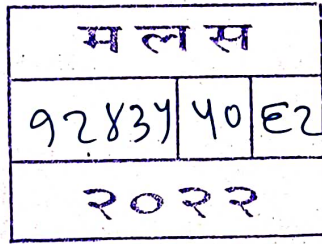 म ल स
१२४३५ ५० ६२
२०२२